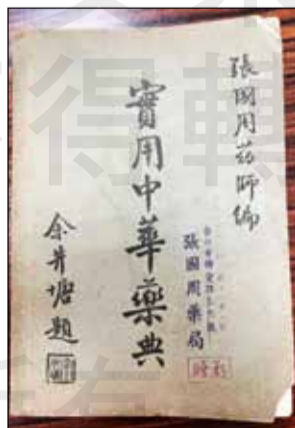 張國周药師編
實用中華藥典
張國周藥局
余井塘題